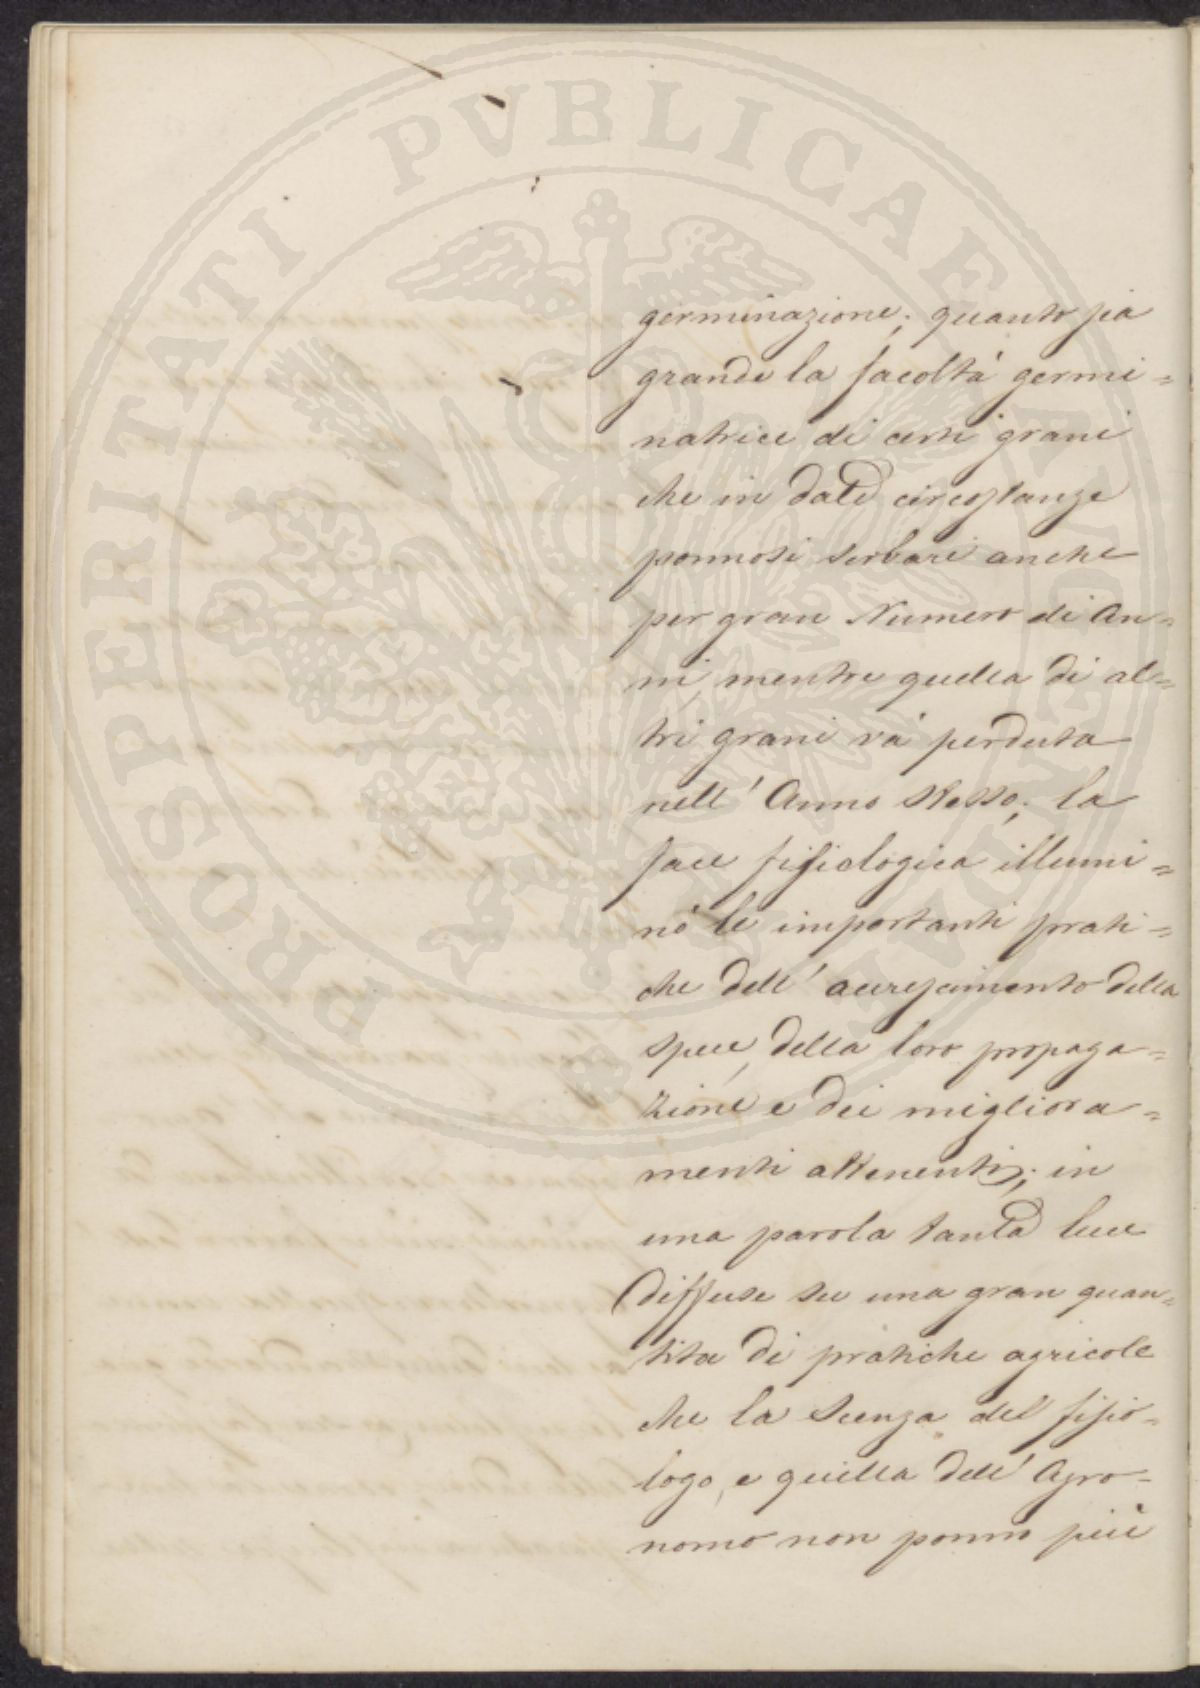 PROSPERITATI PVBLICAE AVGENDAE
germinazione; quanto sia
grande la facoltà germi=
natrice di certi grani
che in date circostanze
ponnosi serbare anche
per gran Numero di An=
ni, mentre quella di al=
tri grani và perduta
nell' Anno stesso; la
face fisiologica illumi=
nò le importanti prati=
che dell' accrescimento della
spece, della loro propaga=
zione e dei migliora=
menti attenenti; in
una parola tanta luce
diffuse su una gran quan=
tita di pratiche agricole
che la scenza del fisio=
logo, e quella dell' Agro=
nomo non ponno più